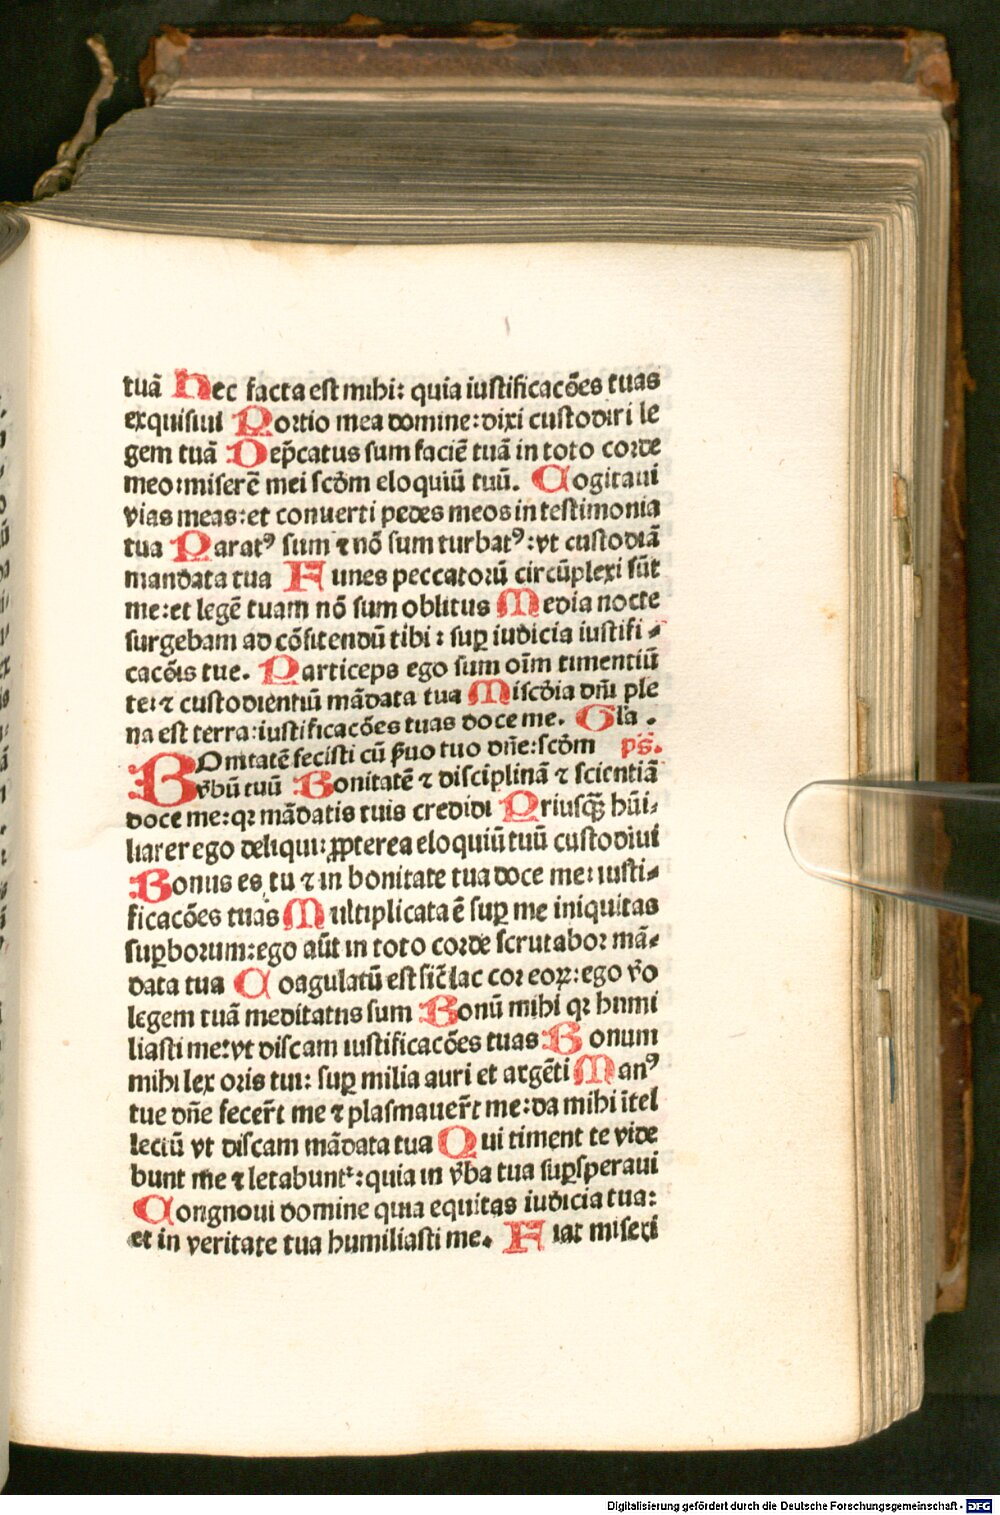 tuā Hec facta est mihi: quia iustificacōes tuas
exquisiui Portio mea domine: dixi custodiri le
gem tuā Dep̄catus sum faciē tuā in toto corde
meo: miserē mei scd̄m eloquiū tuū. Cogitaui
vias meas: et conuerti pedes meos in testimonia
tua Paratꝰ sum ⁊ nō sum turbatꝰ: vt custodiā
mandata tua Funes peccatorū circūplexi sūt
me: et legē tuam nō sum oblitus Media nocte
surgebam ad cōfitendū tibi: suꝑ iudicia iustifi⸗
cacōis tue. Particeps ego sum oīm timentiū
te: ⁊ custodientiū mādata tua Miscd̄ia dn̄i ple
na est terra: iustificacōes tuas doce me. Gl̄a.
BOnitatē fecisti cū ẜuo tuo dn̄e: scd̄m ps̄.
v̄bū tuū Bonitatē ⁊ disciplinā ⁊ scientiā
doce me: qꝛ mādatis tuis credidi Priusqꝫ̄ hūi⸗
liarer ego deliqui: ꝓpterea eloquiū tuū custodiui
Bonus es tu ⁊ in bonitate tua doce me: iusti⸗
ficacōes tuas Multiplicata ē suꝑ me iniquitas
suꝑborum: ego aūt in toto corde scrutabor mā⸗
data tua Coagulatū est sic̄ lac cor eoꝝ: ego v̄o
legem tuā meditatus sum Bonū mihi qꝛ humi
liasti me: vt discam iustificacōes tuas Bonum
mihi lex oris tui: suꝑ milia auri et argēti Manꝰ
tue dn̄e fecer̄t me ⁊ plasmauer̄t me: da mihi ītel
lectū vt discam mādata tua Qui timent te vide
bunt me ⁊ letabunt᷑: quia in v̄ba tua suꝑsperaui
Congnoui domine quia equitas iudicia tua:
et in veritate tua humiliasti me. Fiat miseri
Digitalisierung gefördert durch die Deutsche Forschungsgemeinschaft - DFG